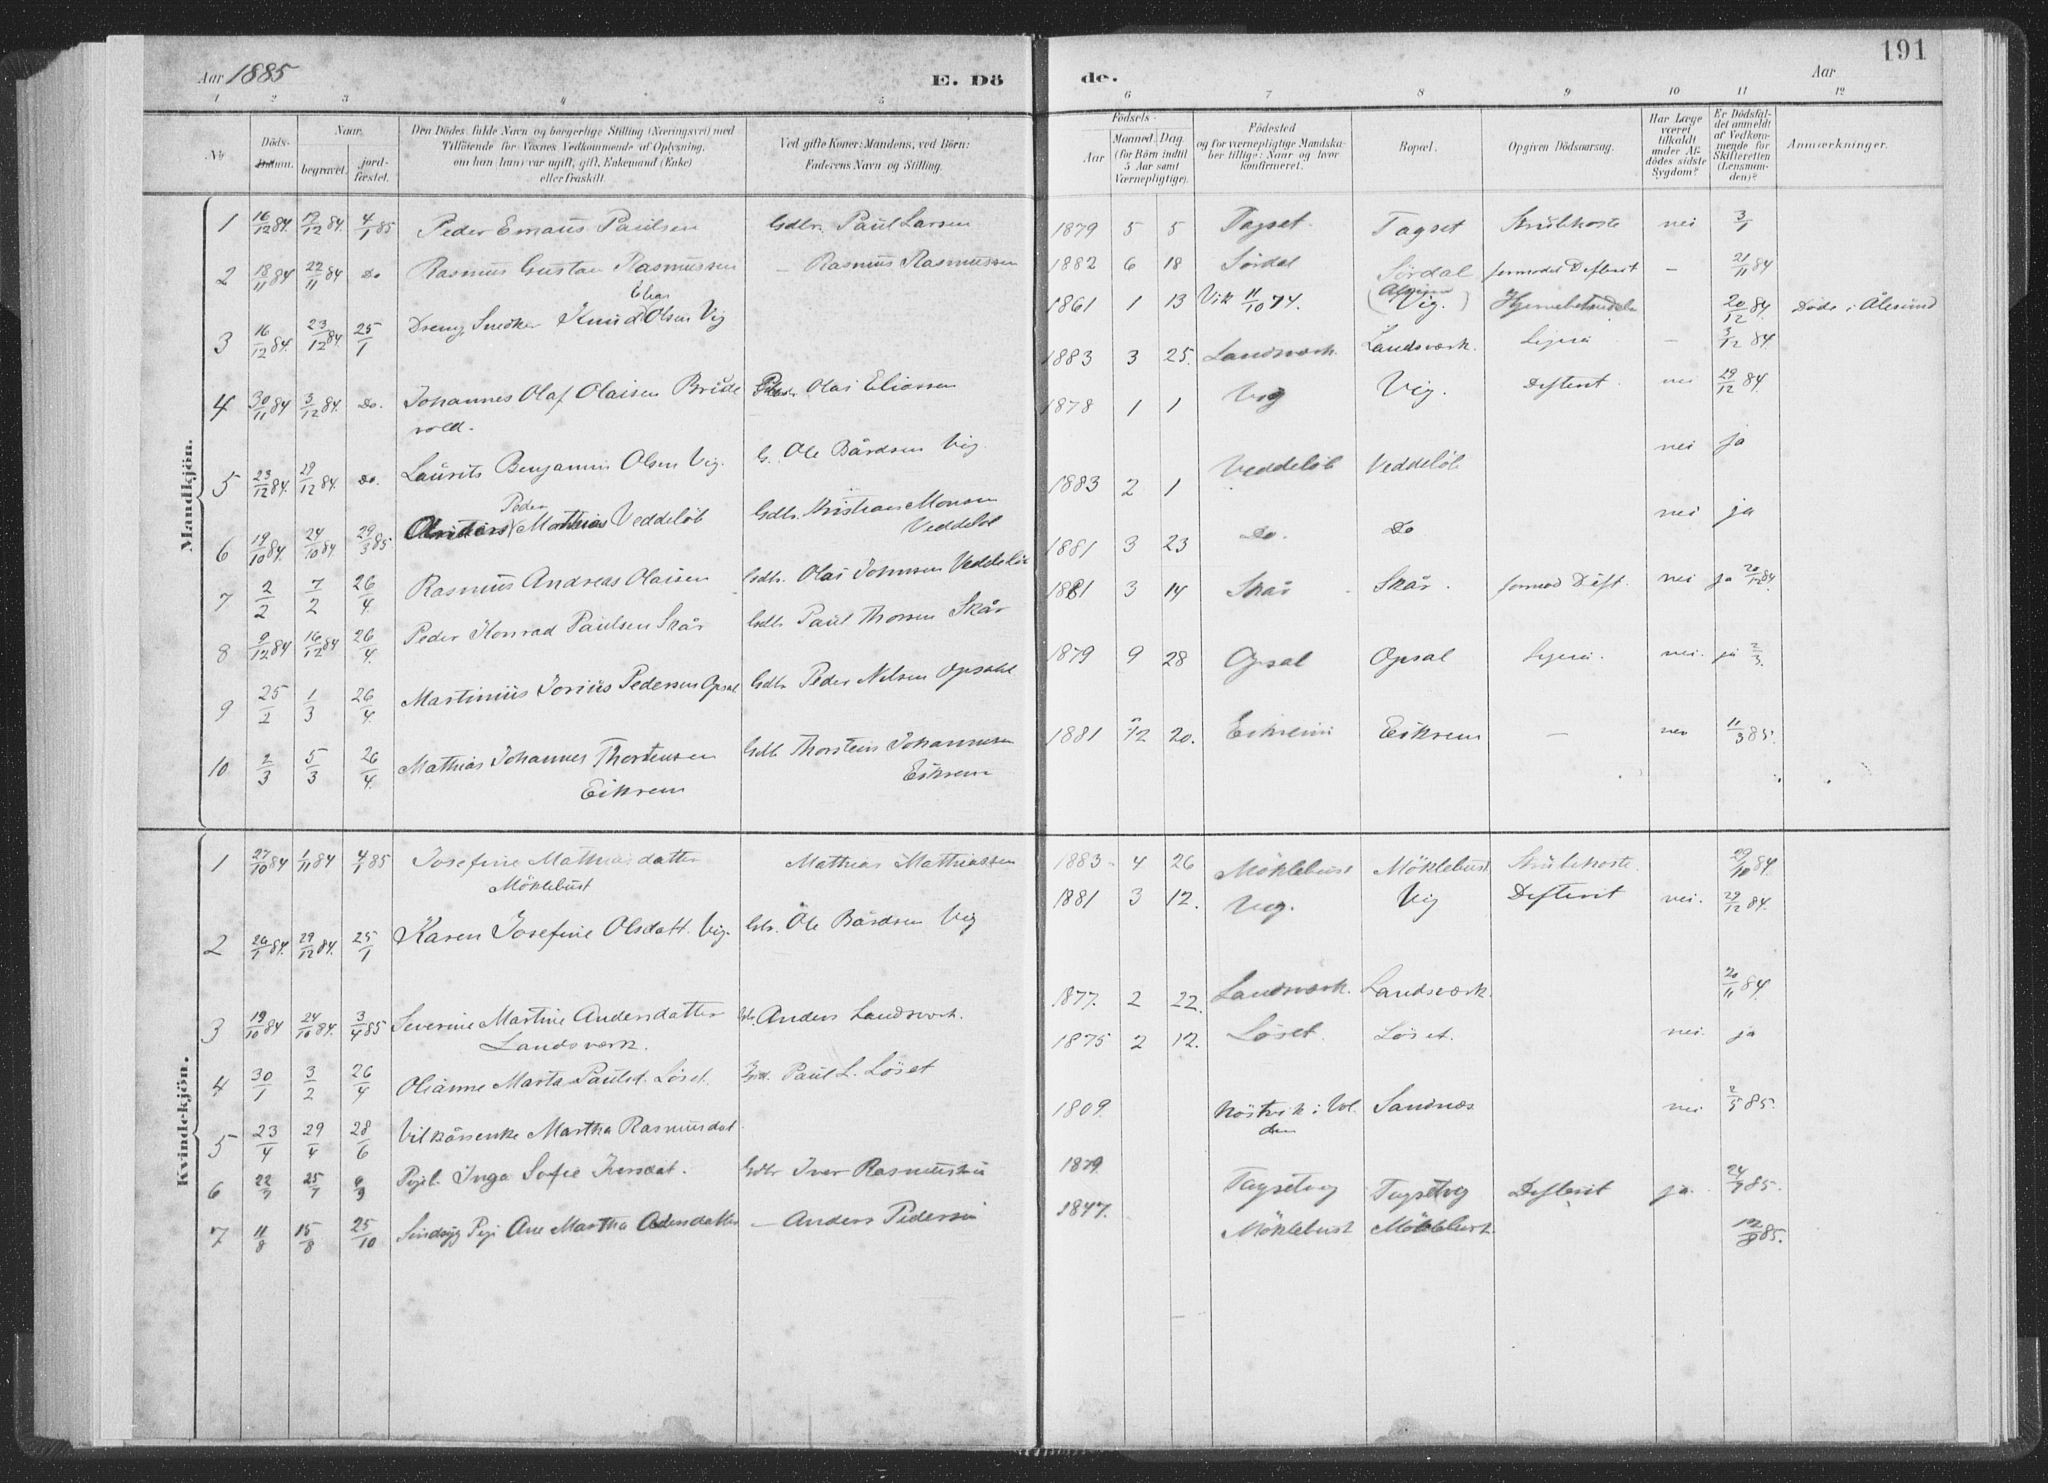 191
Aar 1885
E. Dö
de.
Aar
1 2 3 4 5 6 7 8 9 10 11 12
No
Döds-
Naar.
begravet.
jord-
fæstet.
Den Dödes fulde Navn og borgerlige Stilling (Næringsvei) med
Tilföiende for Voxnes Vedkommende af Oplysning,
om han (hun) var ugift, gift, Enkemand (Enke)
eller fraskilt.
Ved gifte Koner: Mandens, ved Börn:
Faderens Navn og Stilling.
Födsels-
Aar
Maaned. Dag.
(for Börn indtil
5 Aar samt
Værnepligtige).
Födested
og for værnepligtige Mandska-
ber tillige: Naar og hvor
konfirmeret.
Bopæl.
Opgiven Dödsaarsag.
Har Læge
været
tilkaldt
under Af-
dödes sidste
Sygdom?
Er Dödsfal-
det anmeldt
af Vedkom-
mende for
Skifteretten
(Lensman-
den)?
Anmærkninger.
Mandkjön.
1 16/12 84. 19/12 84. 4/1 85 Peder Emaus Paulsen Gdbr. Paul Larsen 1879 5 5 Tagset. Tagset Strubehoste nei 3/1
2 18/11 84 22/11 84 Do Rasmus Gustav Rasmussen — Rasmus Rasmussen 1882 6 18 Sördal Sördal formodet Difterit — 21/11 84
3 16/12 84. 23/12 84. 25/1 Dreng Snedker Knud Elias Olsen Vig 1861 1 13 Vik 11/10 74. Vig. 20/12 84. Döde i Ålesund
4 30/11 84 3/12 84. Do. Johannes Olaf Olaisen Brude
vold. Olai Eliassen 1883 3 25. Landsværk. Landsværk. — 3/12 84
5 23/12 84. 29/12 84. Do. Laurits Benjamin Olsen Vig. G. Ole Bårdsen Vig. 1878 1 1 Vig Vig. Difterit. nei 29/12 84.
6 19/10 84. 24/10 84. 29/3 85. Peder Mathias Veddelöb Gdbr. Kristian Monsen
Veddelöb 1883 2 1 Veddelöb Veddelöb nei ja
7 2/2 7/2 26/4. Rasmus Andreas Olaisen Gdbr. Olai Johnsen Veddelöb 1881 3 23 Do. Do nei ja
8 9/12 84 16/12 84 26/4. Peder Konrad Paulsen Skår Gdbr Paul Thorsen Skår 1881 3 14 Skår Skår. formod Dift. nei ja 20/12 84.
9 25/2 1/3 26/4. Martinius Jorius Pedersen Opsal Gdbr Peder Nilsen Opsahl 1879 9 28 Opsal Opsal nei. ja 2/3.
10 2/3 5/3 26/4. Mathias Johannes Thorstensen
Eikrem Gdb Thorstein Johannesen
Eikrem 1881 12 20. Eikrem Eikrem — nei 11/3 85.
Kvindekjön.
1 27/10 84 1/11 84 4/1 85 Josefine Mathiasdatter
Möklebust Mathias Mathiassen 1883 4 26 Möklebust Möklebust. Strubehoste. 29/10 84.
2 29/12 84. 25/1 Karen Josefine Olsdatt. Vig. Gdr. Ole Bårdsen Vig 1881 3 12. Vig. Vig Difterit nei. 29/12 84.
3 19/10 84 24/10 84. 3/4 85 Severine Martine Andersdatter
Landsværk. Anders Landsværk. 1877. 2 22. Landsværk. Landsværk. 20/11 84.
4 30/1 3/2 26/4 Olianne Marta Paulsd. Löset. Paul L. Löset 1875 2 12. Löset. Löset. nei. ja
5 23/4 29/4 28/6 Vilkårsenke Martha Rasmusdat. 1809. i Vol
den Sandnes nei 2/5 85.
6 22/7 25/7 6/9 Inga Sofie Iversdat. Gdbr Iver Rasmussen 1879. Tagsetvig Tagsetvig Difterit ja. 24/7 85.
7 11/8 15/8 25/10 Sindsyg Pige Ane Martha Andersdatter — Anders Pedersen 1847. Möklebust Möklebust. 12/8 85.